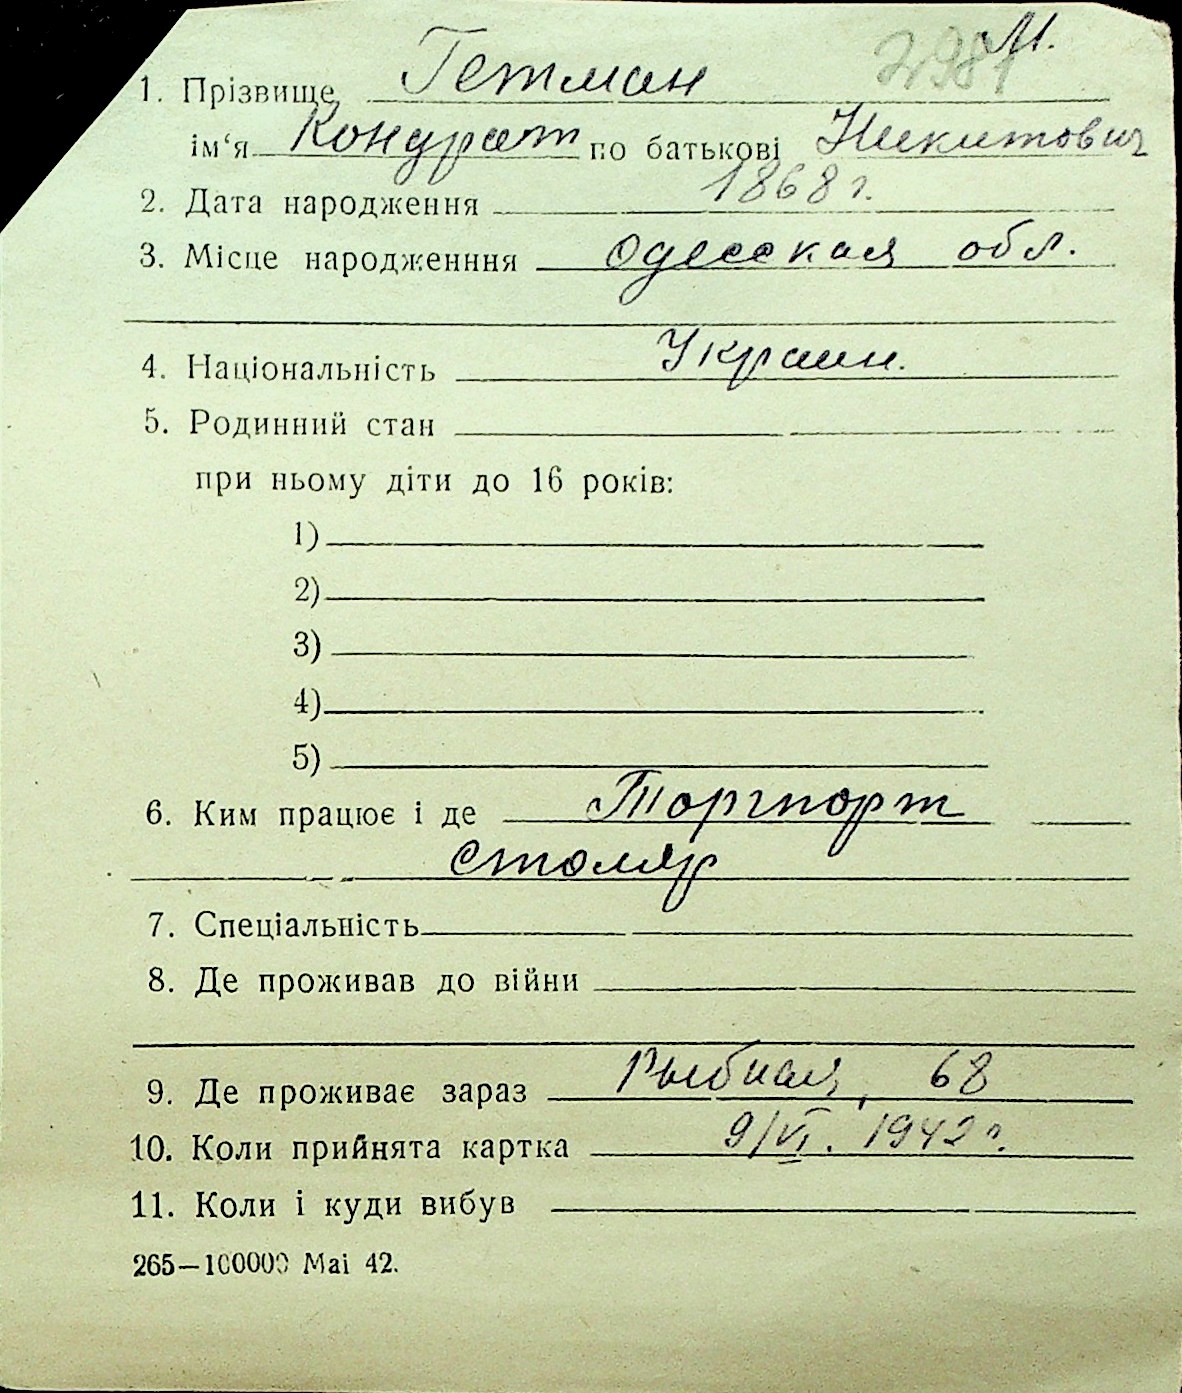 М.
1. Прізвище Гетман
ім‘я Кондрат по батькові Никитович
2. Дата народження 1868 г.
3. Місце народженння Одесская обл.
4. Національність Украин.
5. Родинний стан
при ньому діти до 16 років:
1)
2)
3)
4)
5)
6. Ким працює і де Торгпорт
столяр
7. Спеціальність
8. Де проживав до війни
9. Де проживає зараз Рыбная, 68
10. Коли прийнята картка 9/VI. 1942 г.
11. Коли і куди вибув
265—100000 Mai 42.